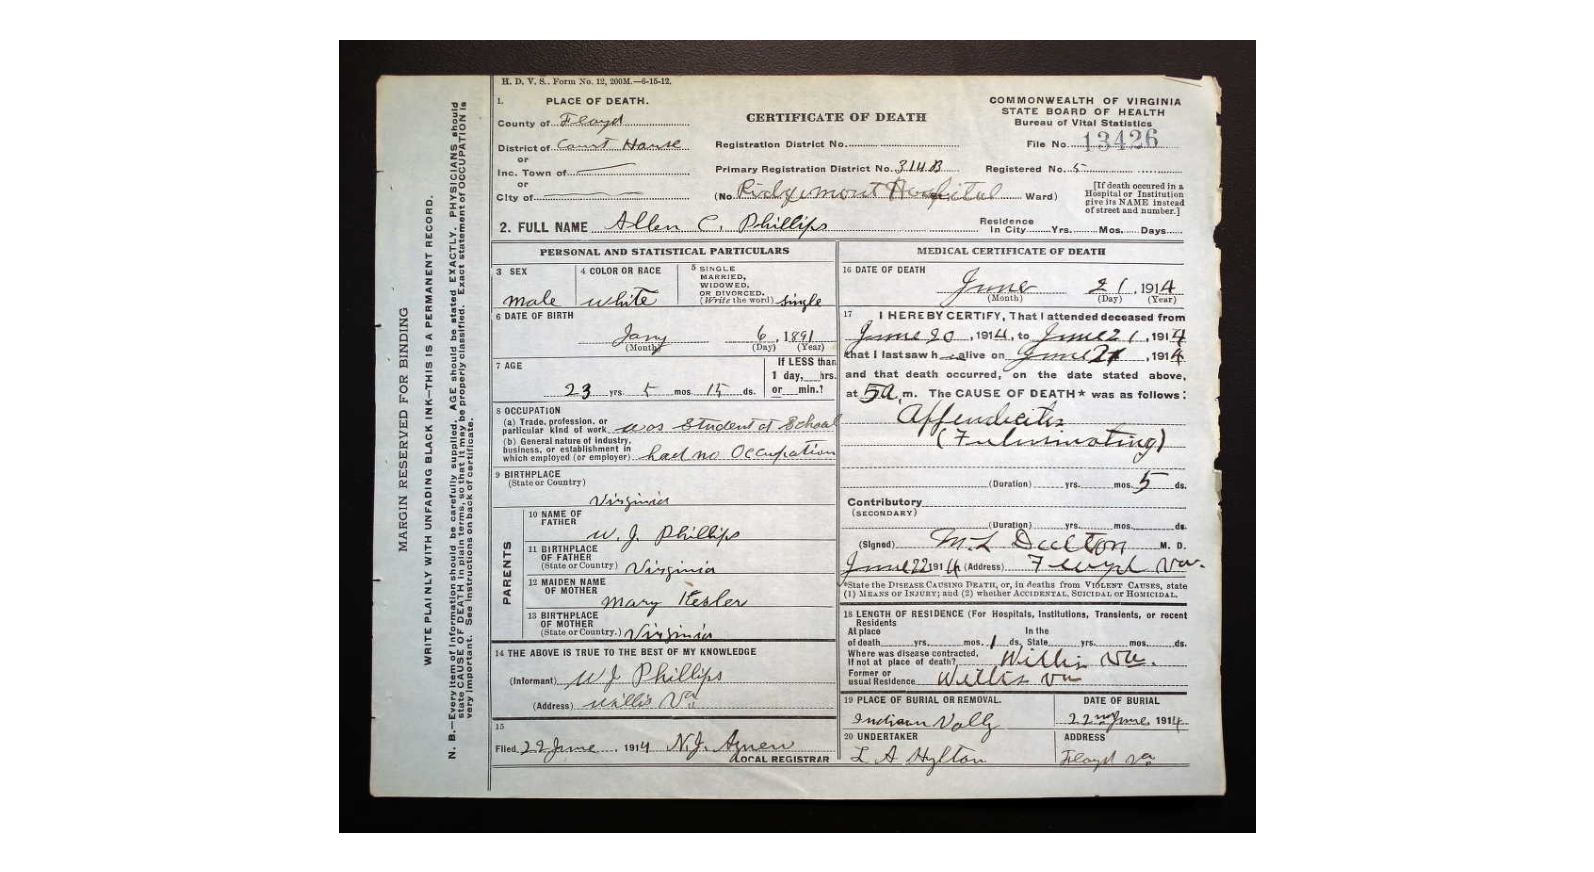 H. D. V. S., Form No. 12, 200M.—6-15-12.
1. PLACE OF DEATH.
County of Floyd
District of Court House
or
Inc. Town of
or
City of
CERTIFICATE OF DEATH
Registration District No.
Primary Registration District No. 314B
(No. Ridgemont Hospital Ward)
COMMONWEALTH OF VIRGINIA
STATE BOARD OF HEALTH
Bureau of Vital Statistics
File No. 13426
Registered No. 5
[If death occured in a
Hospital or Institution
give its NAME instead
of street and number.]
2. FULL NAME Allen C. Phillips
Residence
In City Yrs. Mos. Days
PERSONAL AND STATISTICAL PARTICULARS
3 SEX
male
4 COLOR OR RACE
white
5 SINGLE
MARRIED,
WIDOWED,
OR DIVORCED.
(Write the word) single
6 DATE OF BIRTH
Jany 6, 1891
(Month) (Day) (Year)
7 AGE
23 yrs 5 mos 15 ds.
If LESS than
1 day, hrs.
or min.?
8 OCCUPATION
(a) Trade, profession, or
particular kind of work was Student of School
(b) General nature of industry,
business, or establishment in
which employed (or employer) had no Occupation
9 BIRTHPLACE
(State or Country)
Virginia
PARENTS
10 NAME OF
FATHER
W. J. Phillips
11 BIRTHPLACE
OF FATHER
(State or Country) Virginia
12 MAIDEN NAME
OF MOTHER
Mary Kesler
13 BIRTHPLACE
OF MOTHER
(State or Country.) Virginia
14 THE ABOVE IS TRUE TO THE BEST OF MY KNOWLEDGE
(Informant) W J Phillips
(Address) Willis Va
15
Filed 22 June, 1914 N. J. Agnew
LOCAL REGISTRAR
MEDICAL CERTIFICATE OF DEATH
16 DATE OF DEATH
June 21, 1914
(Month) (Day) (Year)
17 I HEREBY CERTIFY, That I attended deceased from
June 20, 1914, to June 21, 1914
that I last saw h alive on June 21, 1914
and that death occurred, on the date stated above,
at 5a, m. The CAUSE OF DEATH* was as follows:
Appendicitis
(Fulminating)
(Duration) yrs. mos. 5 ds.
Contributory
(SECONDARY)
(Duration) yrs. mos. ds.
(Signed) M. L. Dalton M. D.
June 22 1914 (Address) Floyd Va.
*State the DISEASE CAUSING DEATH, or, in deaths from VIOLENT CAUSES, state
(1) MEANS OF INJURY; and (2) whether ACCIDENTAL, SUICIDAL or HOMICIDAL.
18 LENGTH OF RESIDENCE (For Hospitals, Institutions, Transients, or recent
Residents
At place In the
of death yrs. mos. 1 ds. State yrs. mos. ds.
Where was disease contracted,
if not at place of death? Willis Va.
Former or
usual Residence Willis Va
19 PLACE OF BURIAL OR REMOVAL.
Indian Vally
DATE OF BURIAL
22nd June 1914
20 UNDERTAKER
L A Hylton
ADDRESS
Floyd Va
MARGIN RESERVED FOR BINDING
WRITE PLAINLY WITH UNFADING BLACK INK—THIS IS A PERMANENT RECORD.
N. B.—Every item of information should be carefully supplied. AGE should be stated EXACTLY. PHYSICIANS should
state CAUSE OF DEATH in plain terms, so that it may be properly classified. Exact statement of OCCUPATION is
very important. See instructions on back of certificate.